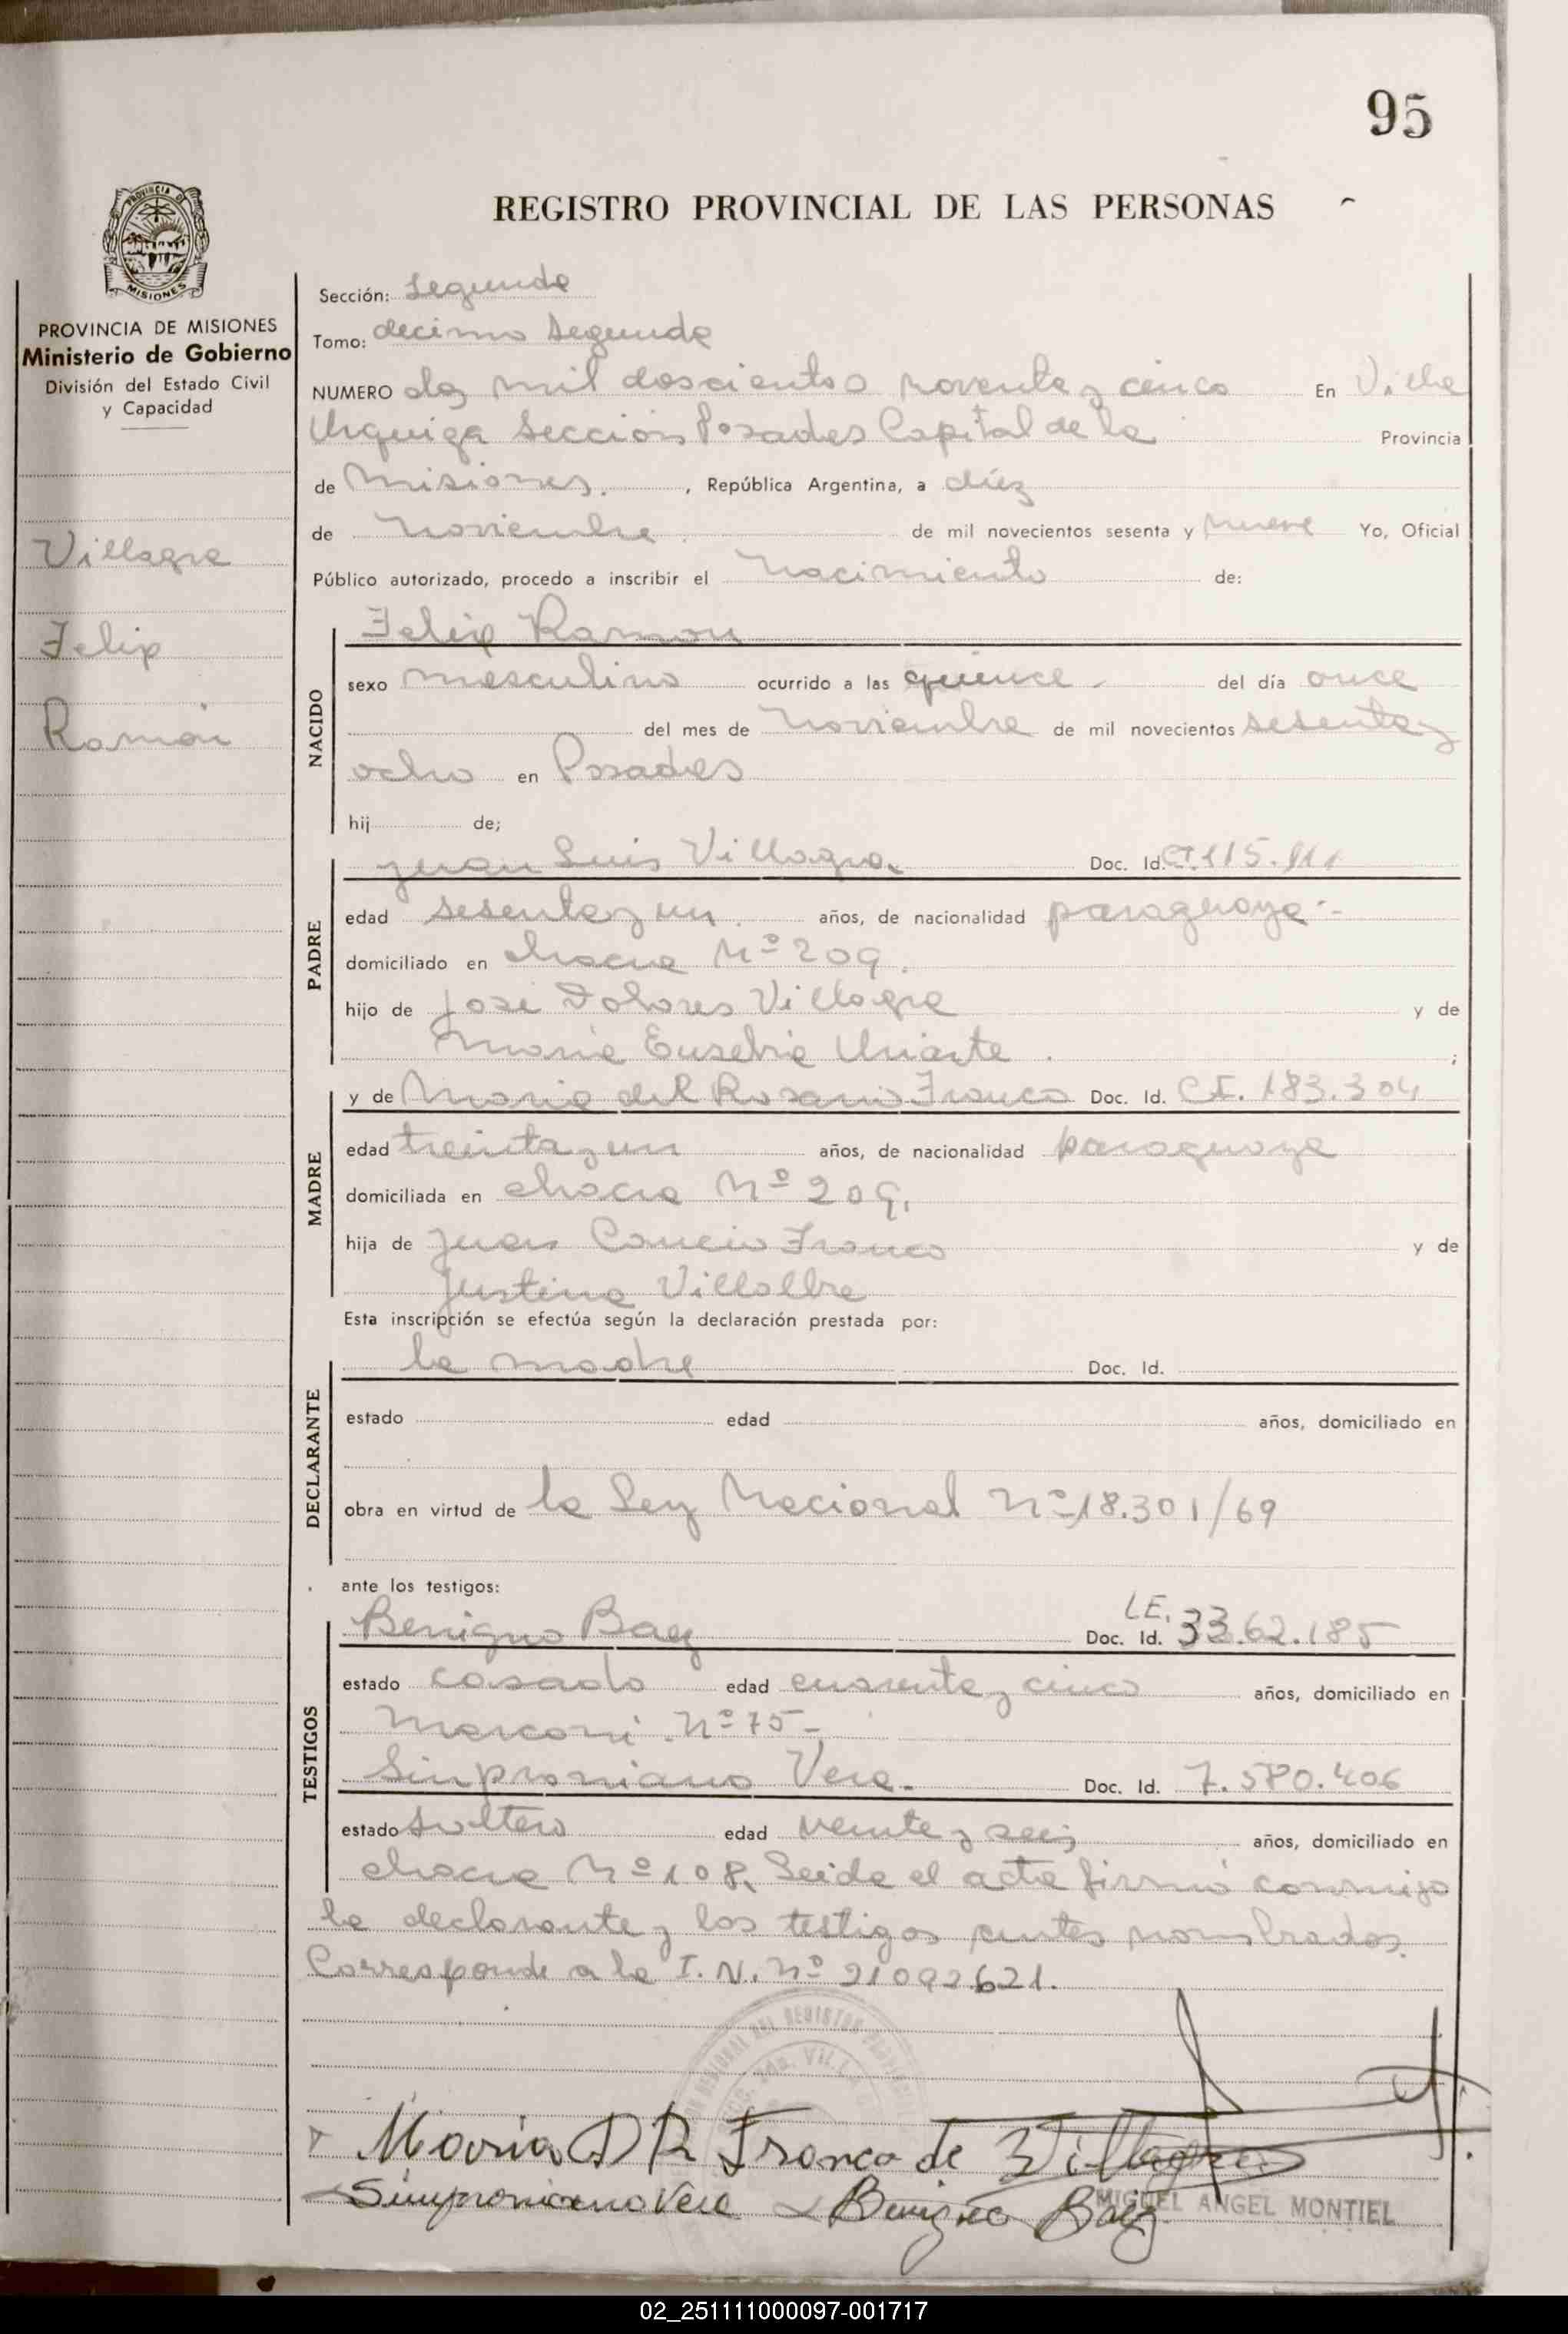 95
REGISTRO PROVINCIAL DE LAS PERSONAS
PROVINCIA DE
MISIONES
PROVINCIA DE MISIONES
Ministerio de Gobierno
División del Estado Civil
y Capacidad
Villagra
Felix
Ramón
Sección: Segunda
Tomo: decimo Segunda
NUMERO dos mil doscientos noventa y cinco En Villa
Urquiza Sección Posadas Capital de la Provincia
de Misiones. , República Argentina, a diez
de Noviembre. de mil novecientos sesenta y nueve Yo, Oficial
Público autorizado, procedo a inscribir el Nacimiento de:
NACIDO
Felix Ramon
sexo masculino ocurrido a las quince. del día once
del mes de Noviembre de mil novecientos sesenta y
ocho en Posadas
hij de;
PADRE
Juan Luis Villagra. Doc. Id. CI.115.911
edad sesenta y un. años, de nacionalidad paraguaya.-
domiciliado en chacra Nº 209.
hijo de José Dolores Villagra y de
Maria Eusebia Uriarte. ;
MADRE
y de Maria del Rosario Franco Doc. Id. CI. 183.304
edad treinta y un años, de nacionalidad paraguaya
domiciliada en chacra Nº 209.
hija de Juan Franco y de
Justina Villalba
Esta inscripción se efectúa según la declaración prestada por:
DECLARANTE
la madre Doc. Id.
estado edad años, domiciliado en
obra en virtud de la Ley Nacional Nº 18.301/69
ante los testigos:
TESTIGOS
LE.
Benigno Baez Doc. Id. 33.62.185
estado casado edad cuarenta y cinco años, domiciliado en
Marconi. Nº 75-
Sinproniano Vera. Doc. Id. 7.580.406
estado soltero edad veinte y seis años, domiciliado en
chacra Nº 108. Leida el acta firmó conmigo
la declarante y los testigos antes nombrados.
Corresponde a la I. N. Nº 21092621.
María D R Franco de Villagra
Simproniano Vera Benigno Baéz
MIGUEL ANGEL MONTIEL
02_251111000097-001717